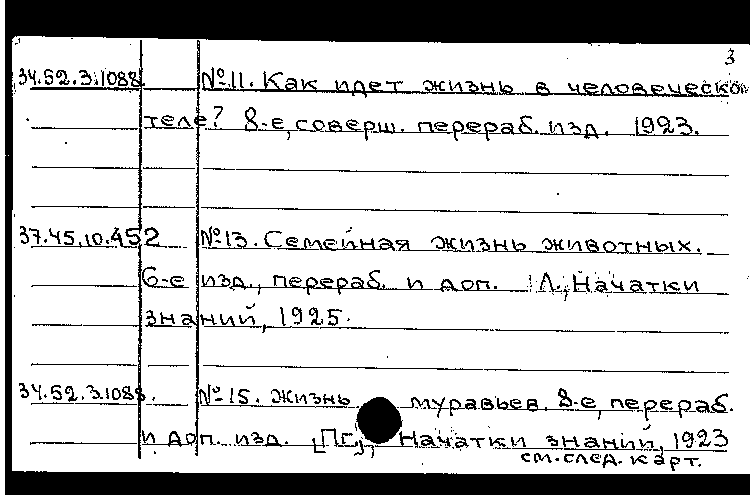 3
34.52.3.1088 №11. Как идет жизнь в человеческом
теле? 8-е, соверш. перераб. изд. 1923.
37.45.10.452 №13. Семейная жизнь животных.
6-е изд., перераб. и доп. Л., Начатки
знаний, 1925.
34.52.3.1088. №15. Жизнь муравьев. 8-е, перераб.
и доп. изд. [Пг.], Начатки знаний, 1923
см. след. карт.